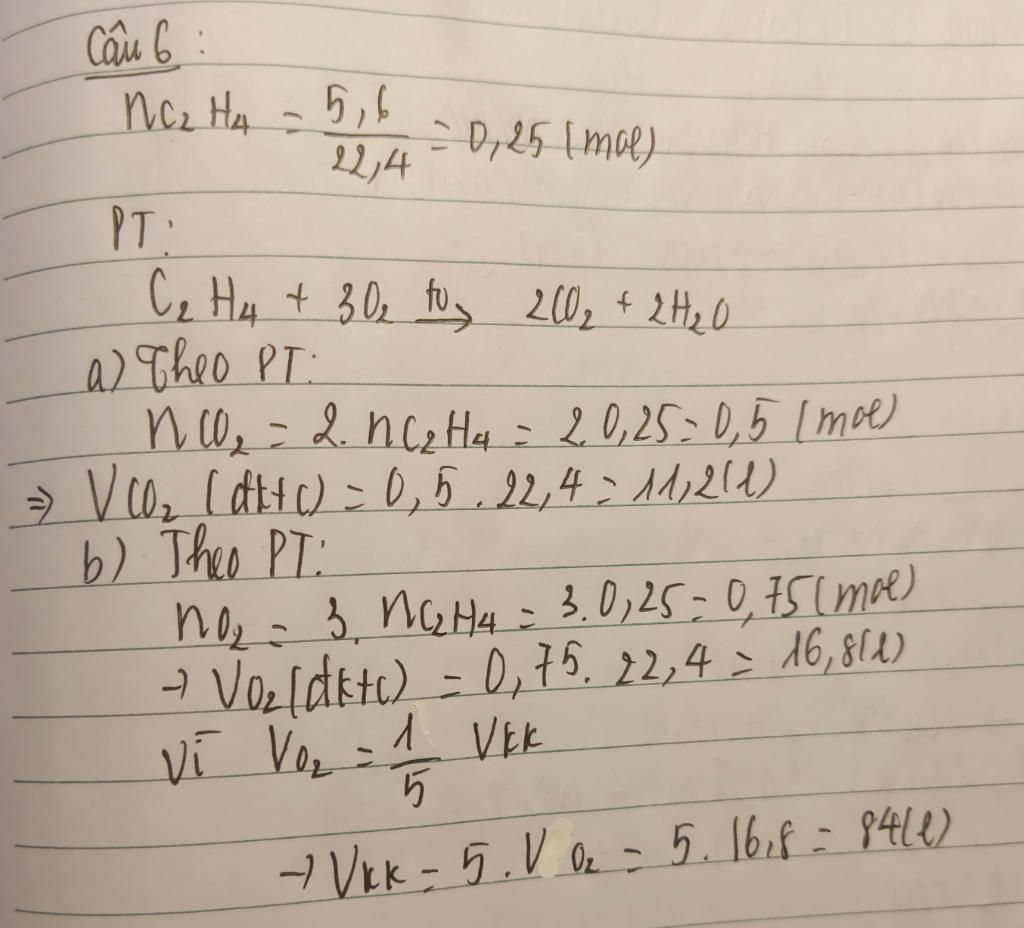 Câu 6 :
nC₂H₄ = 5,6/22,4 = 0,25 (mol)
PT:
C₂H₄ + 3O₂ to→ 2CO₂ + 2H₂O
a) Theo PT:
nCO₂ = 2. nC₂H₄ = 2.0,25 = 0,5 (mol)
⇒ VCO₂ (đktc) = 0,5 . 22,4 = 11,2(l)
b) Theo PT:
nO₂ = 3. nC₂H₄ = 3.0,25 = 0,75(mol)
→ VO₂(đktc) = 0,75. 22,4 = 16,8(l)
Vì VO₂ = 1/5 Vkk
→ Vkk = 5.V O₂ = 5. 16,8 = 84(l)